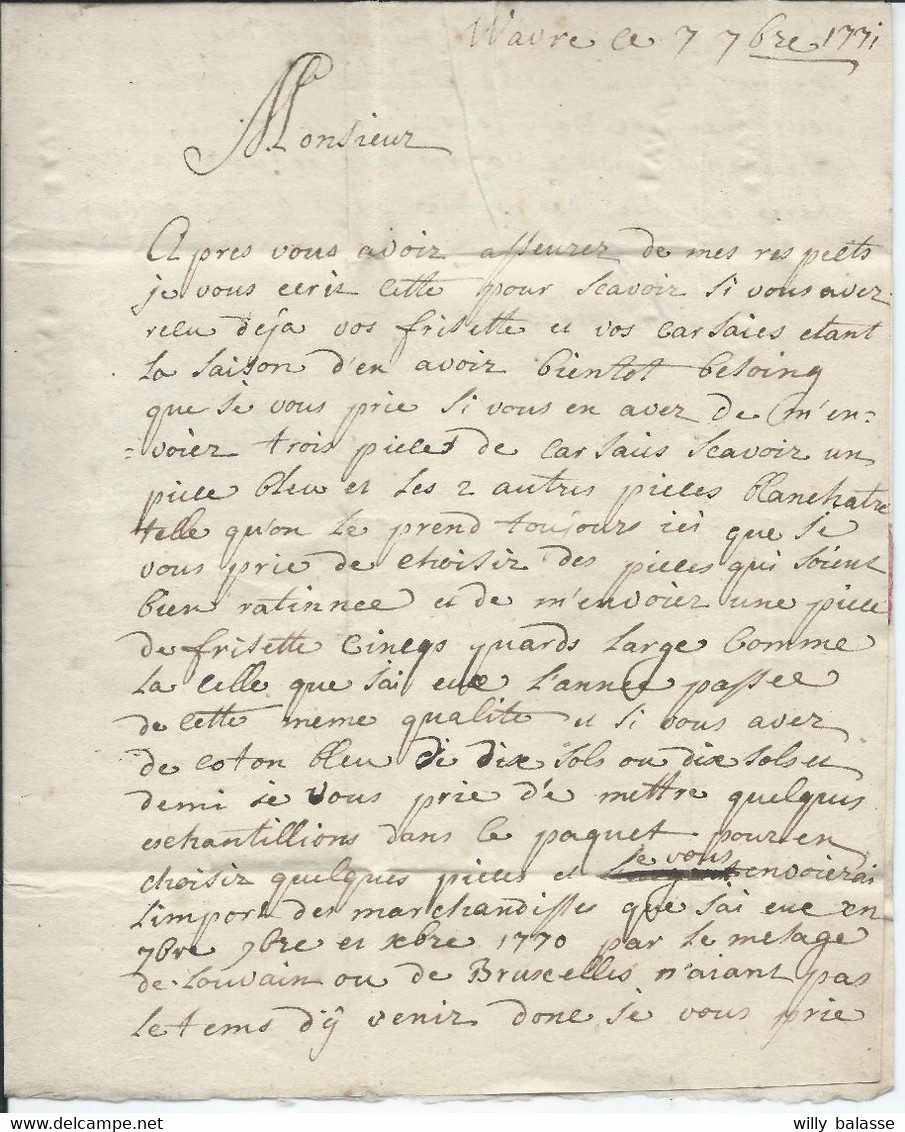 Wavre ce 7 7bre 1771
Monsieur
Apres vous avoir asseurez de mes respects
je vous ecris cette pour scavoir si vous avez
recu deja vos frisette et vos carsaies etant
la saison d'en avoir bientot besoing
que je vous prie si vous en avez de m'en=
=voiez trois pieces de carsaies scavoir un
piece bleu et les 2 autres pieces blanchatre
telle qu'on le prend toujours ici que je
vous prie de choisir des pieces qui soient
bien ratinnee et de m'envoiez une piece
de frisette cincqs quards large comme
la celle que j'ai eue l'annee passee
de cette meme qualite et si vous avez
de coton bleu de dix sols ou dix sols et
demi je vous prie de mettre quelques
eschantillions dans le paquet pour en
choisir quelques pieces et je vous envoierai
l'import des marchandisses que j'ai eue en
7bre 9bre et xbre 1770 par le mesage
de Louvain ou de Bruxcelles n'aiant pas
le tems d'ÿ venir donc je vous prie
willy balasse